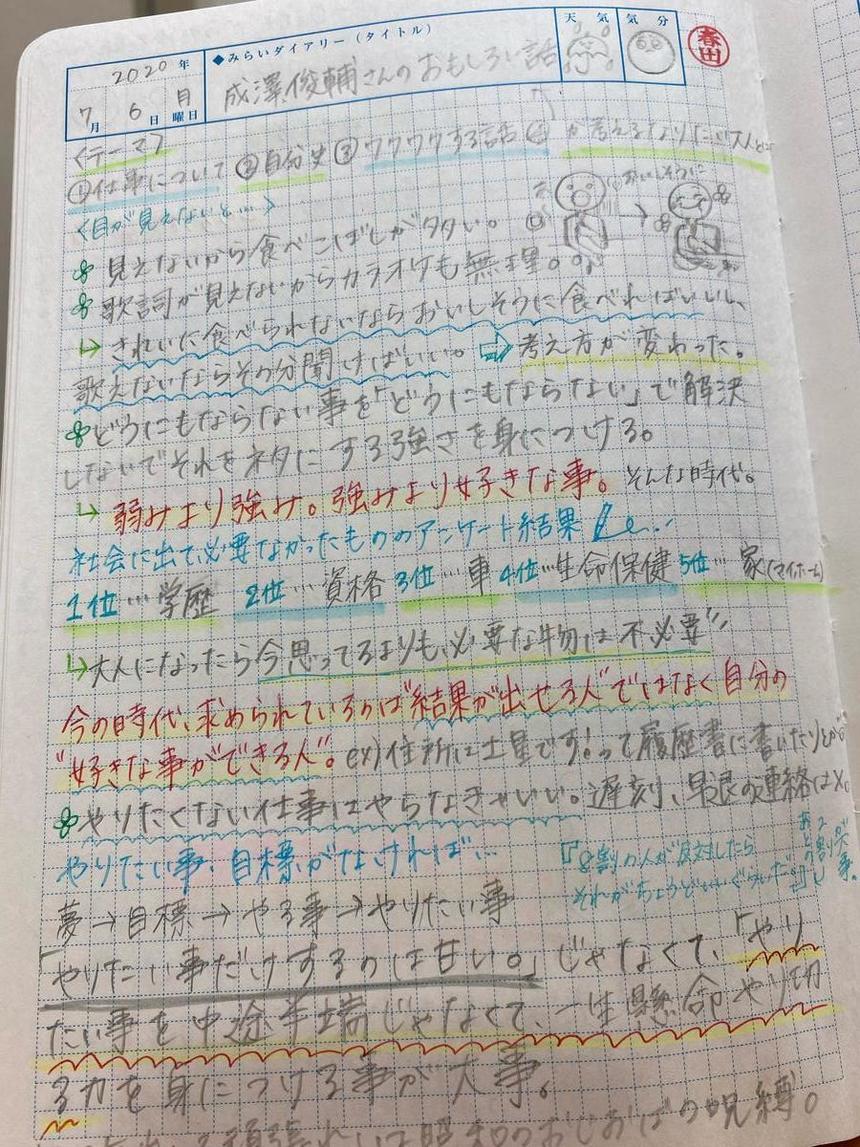 2020年
7月 6日 月曜日
◆みらいダイアリー(タイトル)
成澤俊輔さんのおもしろい話
天気
気分
春田
<テーマ>
①仕事について ②自分史 ③ワクワクする話 ④ が考えるなりたい大人とは
<目が見えないと…>
見えないから食べこぼしが多い。
おいしそうに
歌詞が見えないからカラオケも無理。
↳きれいに食べられないならおいしそうに食べればいいし、
歌えないならその分聞けばいい。⇨考え方が変わった。
どうにもならない事を「どうにもならない」で解決
しないでそれをネタにする強さを身につける。
↳弱みより強み。強みより好きな事。そんな時代。
社会に出て必要なかったもののアンケート結果
1位…学歴 2位…資格 3位…車 4位…生命保健 5位…家(マイホーム)
↳大人になったら今思ってるよりも、必要な物は不必要"
今の時代、求められているのは"結果が出せる人"ではなく自分の
"好きな事ができる人"。ex)住所は土星です!って履歴書に書いたりとか。
やりたくない仕事はやらなきゃいい。遅刻、早退の連絡は×。
やりたい事、目標がなければ…
『8割の人が反対したら
それがちょうどいいぐらいだ。』
夢→目標→やる事→やりたい事
「やりたい事だけするのは甘い。」じゃなくて、「やり
たい事を中途半端じゃなくて、一生懸命やり切
る力を身につける事が大事。
頑張れいは昭和のおじおばの呪縛。